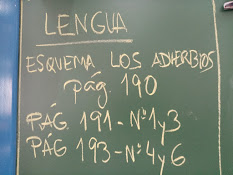 LENGUA
ESQUEMA LOS ADVERBIOS
pág. 190
PÁG. 191-Nº 1y3
PÁG 193-Nº 4y6